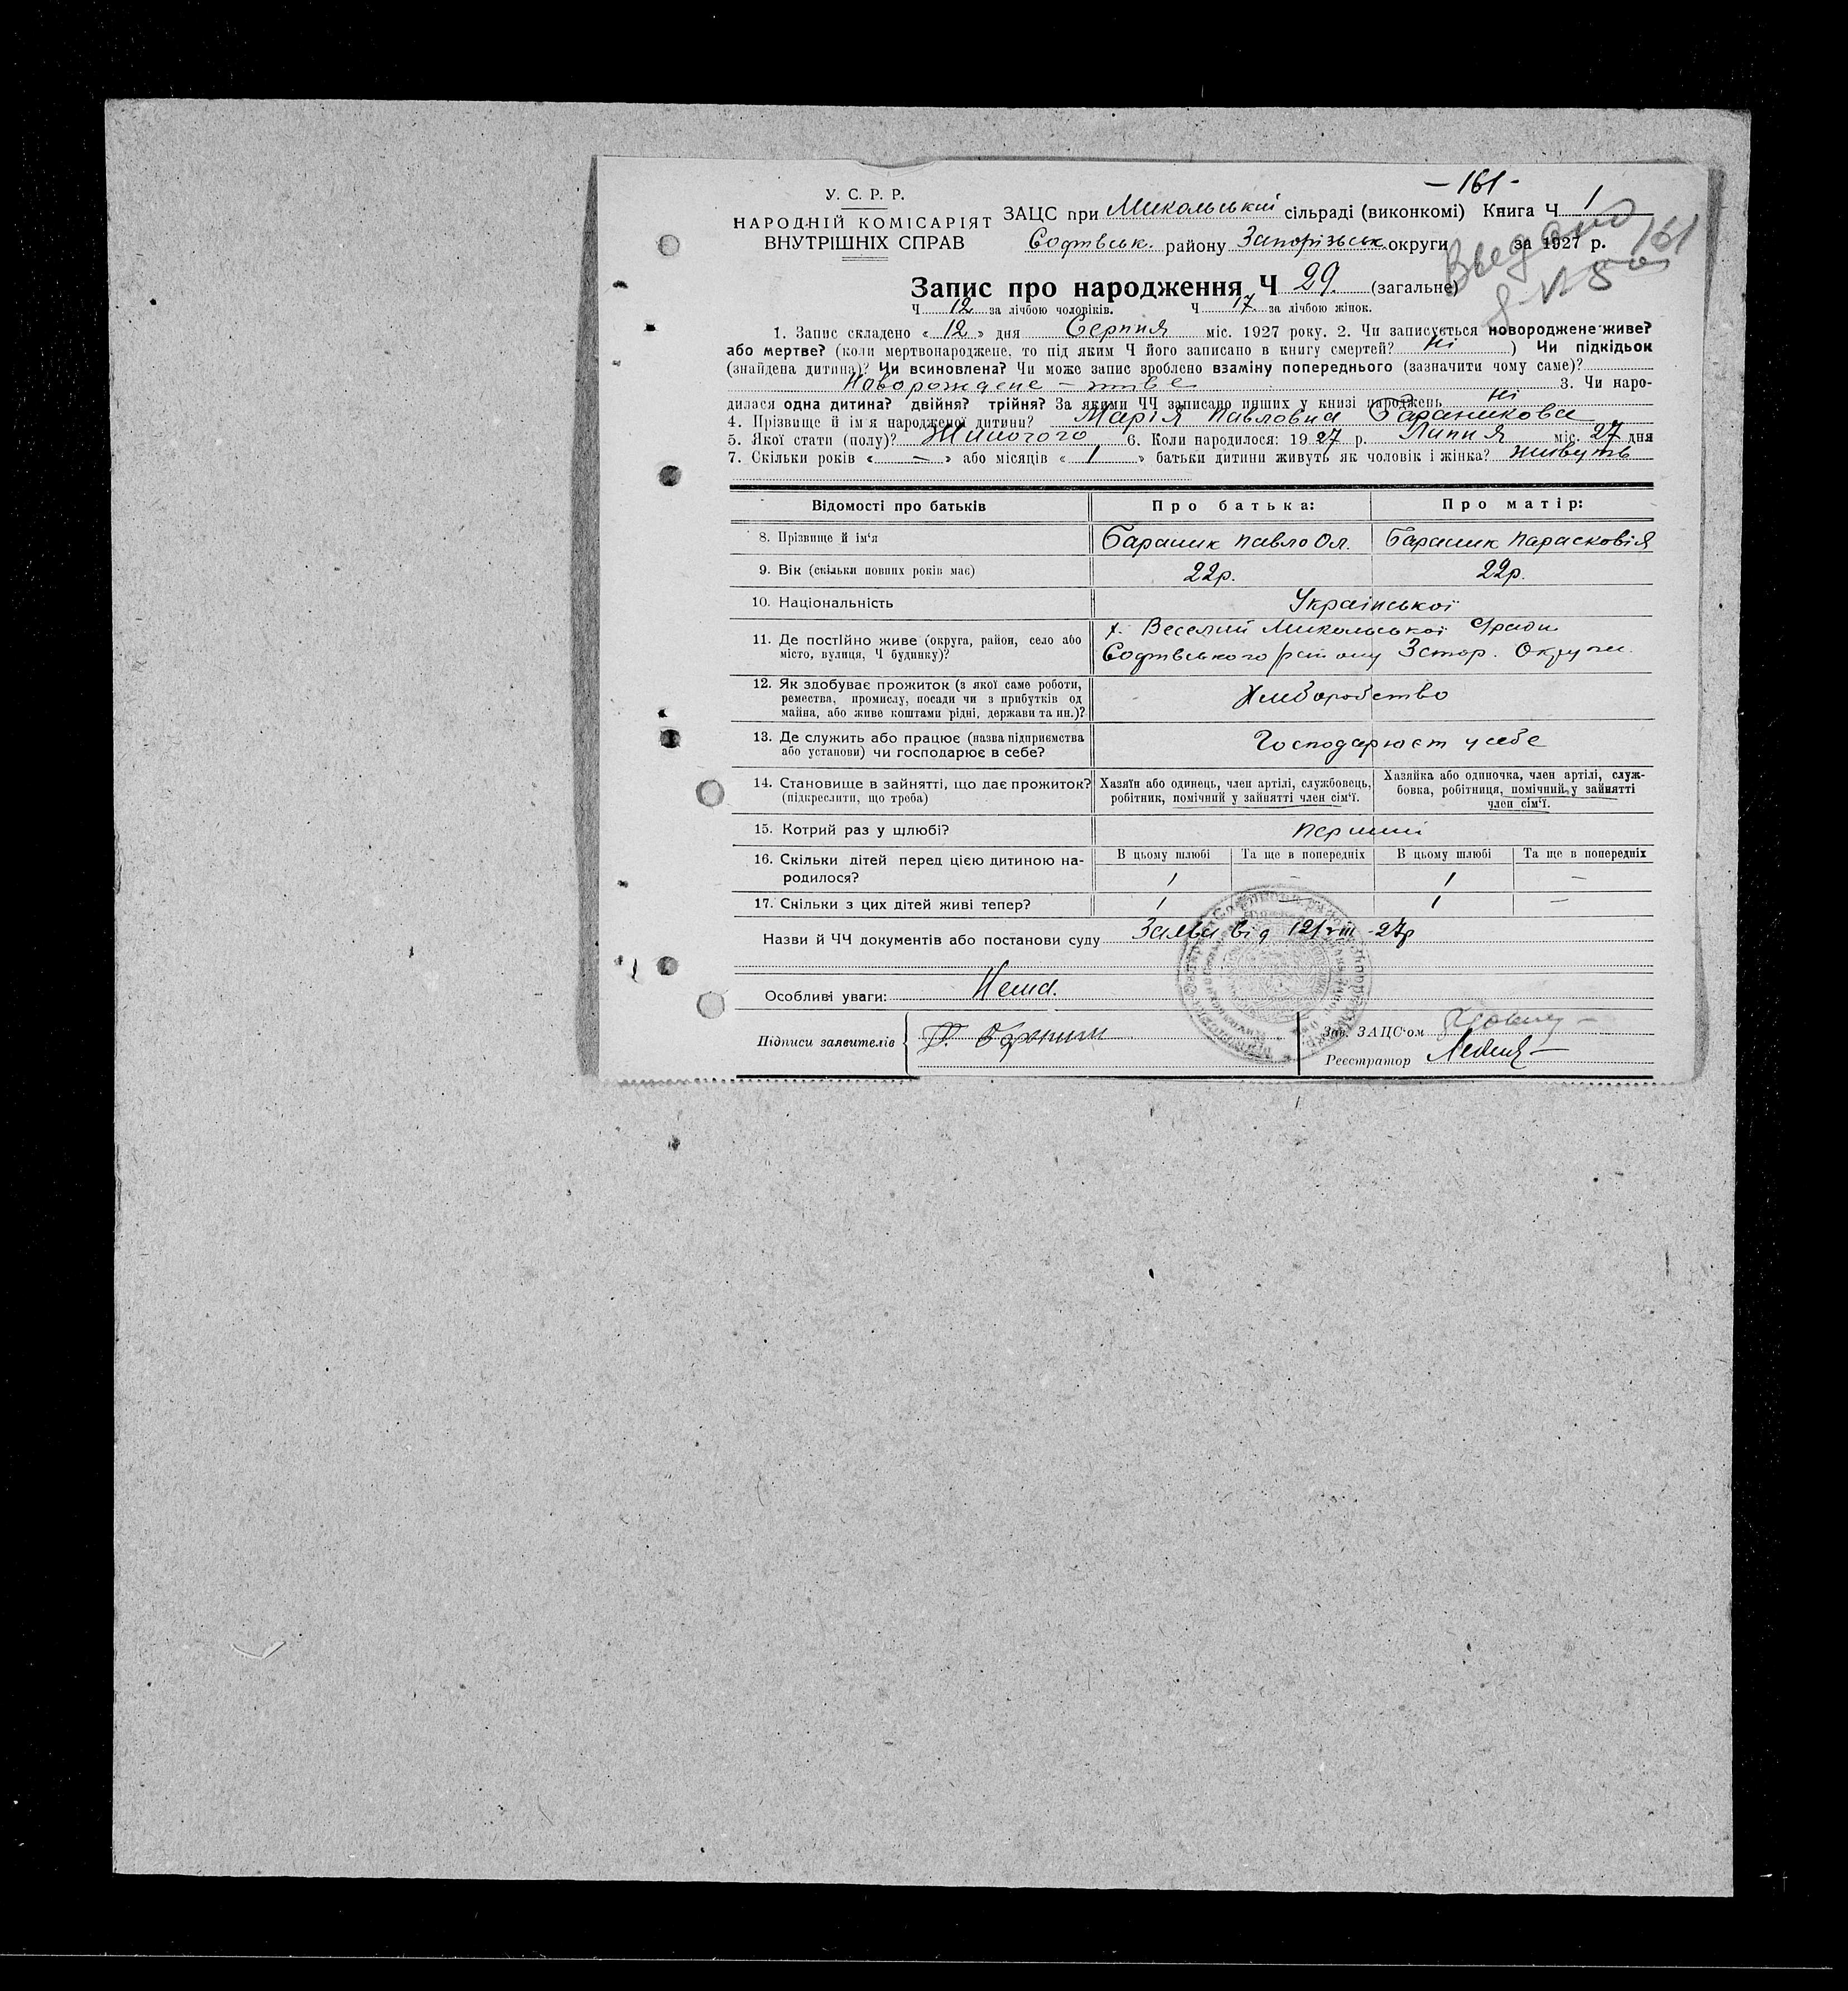 - 161 -
У. С. Р. Р.
НАРОДНІЙ КОМІСАРІЯТ
ВНУТРІШНІХ СПРАВ
ЗАЦС при Микольський сільраді (виконкомі) Книга Ч 1
Софтвськ. району Запорізьськ округи за 1927 р.
161
Запис про народження Ч 29. (загальне)
Ч 12 за лічбою чоловіків. Ч 17 за лічбою жінок.
1. Запис складено « 12 » дня Серпня міс. 1927 року. 2. Чи записується новороджене живе?
або мертве? (коли мертвонароджене, то під яким Ч його записано в книгу смертей? Ні ) Чи підкідьок
(знайдена дитина)? Чи всиновлена? Чи може запис зроблено взаміну попереднього (зазначити чому саме)?
Новорождене - живе 3. Чи наро-
дилася одна дитина? двійня? трійня? За якими ЧЧ записано инших у книзі народжень Ні
4. Прізвище й ім'я народженої дитини? Марія Павловна Бараникова
5. Якої стати (полу)? Жіночого 6. Коли народилося: 1927 р. Липня міс. 27 дня
7. Скільки років « — » або місяців « 1 » батьки дитини живуть як чоловік і жінка? живуть
Відомості про батьків Про батька: Про матір:
8. Прізвище й ім'я Бараник Павло Ол. Бараник Парасковія
9. Вік (скільки повних років має) 22р. 22р.
10. Національність Української
11. Де постійно живе (округа, район, село або х. Веселий Микольської С/ради
місто, вулиця, Ч будинку)? Софтвського району Запор. Округи.
12. Як здобуває прожиток (з якої саме роботи,
ремества, промислу, посади чи з прибутків од Хліборобство
майна, або живе коштами рідні, держави та ин.)?
13. Де служить або працює (назва підприємства Господарюєт у себе
або установи) чи господарює в себе?
14. Становище в зайнятті, що дає прожиток? Хазяїн або одинець, член артілі, службовець, Хазяйка або одиночка, член артілі, служ-
(підкреслити, що треба) робітник, помічний у зайнятті член сім'ї. бовка, робітниця, помічний у зайнятті
член сім'ї.
15. Котрий раз у шлюбі? перший
16. Скільки дітей перед цією дитиною на- В цьому шлюбі Та ще в попередніх В цьому шлюбі Та ще в попередніх
родилося? 1 — 1 —
17. Скільки з цих дітей живі тепер? 1 1 —
Назви й ЧЧ документів або постанови суду Заява від 12/VIII-27р
Особливі уваги: Нема.
Підписи заявителів Зав. ЗАЦС'ом
Реєстратор